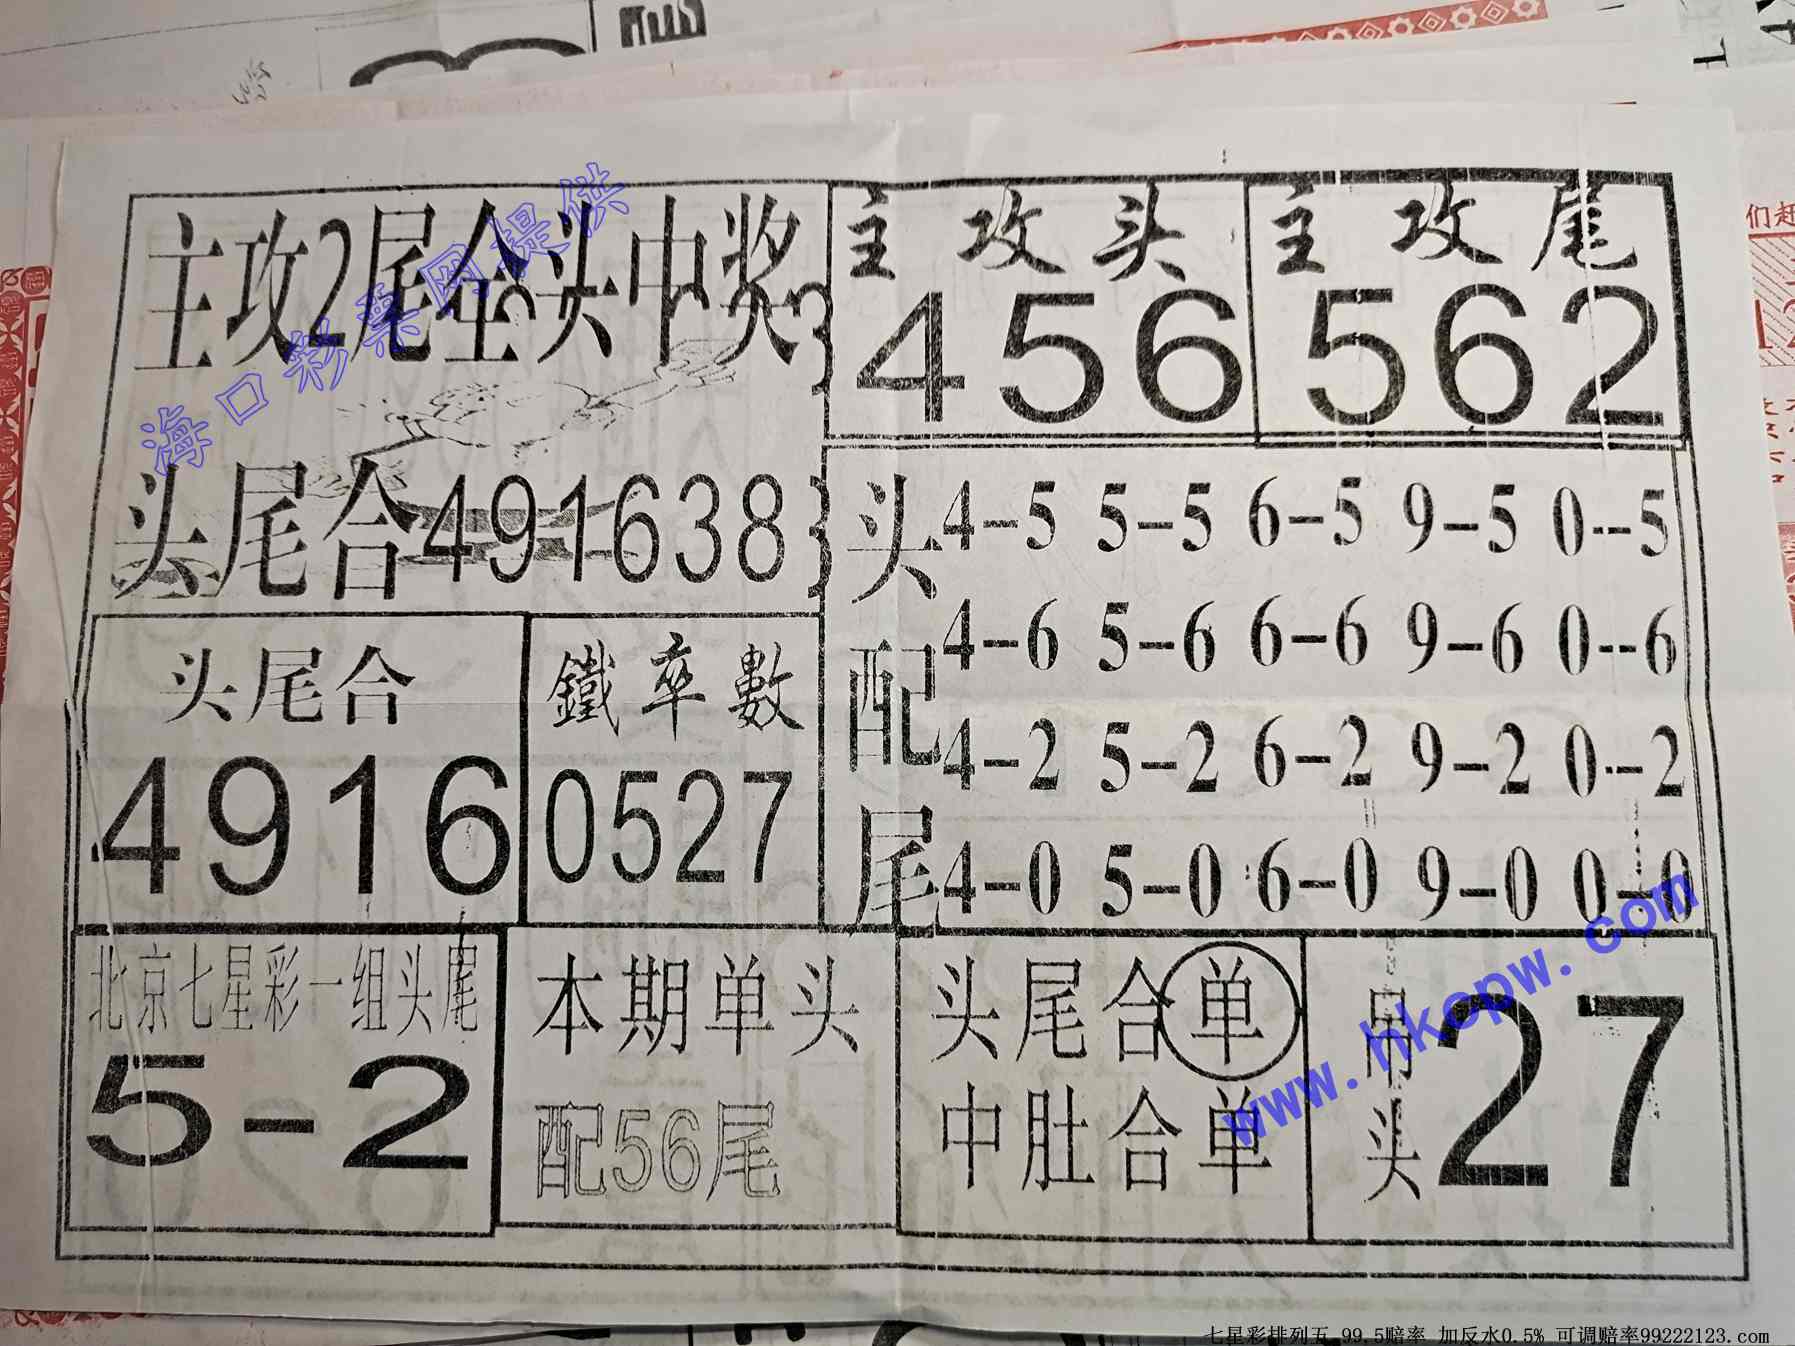 主攻2尾全头中奖
主攻头
456
主攻尾
562
头尾合491638
头配尾
4-5 5-5 6-5 9-5 0--5
4--6 5-6 6-6 9-6 0--6
4-2 5-2 6-2 9-2 0--2
4-0 5-0 6-0 9-0 0--0
头尾合
4916
鐵率數
0527
北京七星彩一组头尾
5-2
本期单头
配56尾
头尾合单
中肚合单
吊头
27
海口彩票网提供
www.hkcpw.com
七星彩排列五 99.5赔率 加反水0.5% 可调赔率99222123.com